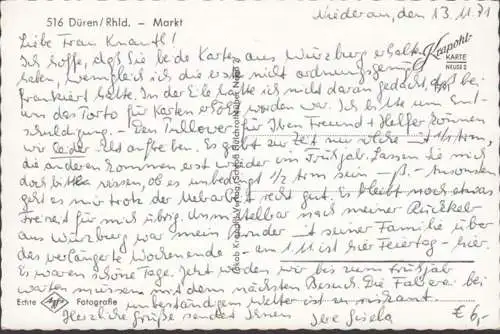 516 Düren/Rhld. – Markt
Niederau, den 13.11.71
Liebe Frau Knauthl!
Ich hoffe, daß Sie beide Karten aus Würzburg erhalten
haben, wenngleich ich die erste nicht ordnungsgemäß
frankiert hatte. In der Eile hatte ich nicht daran gedacht, daß bei
uns das Porto für Karten erhöht worden war. Ich bitte um Ent-
schuldigung. – Den Pullover für Ihren Freund + Helfer können
wir leider nicht auftreiben. Es gibt zur Zeit nur welche mit 1/1 Arm,
die anderen kommen erst wieder im Frühjahr. Lassen Sie mich
doch bitte wissen, ob es unbedingt 1/2 Arm sein – ß. – Ansonsten
geht es mir trotz der Mehrarbeit recht gut. Es bleibt noch etwas
Freizeit für mich übrig. Unmittelbar nach meiner Rückkehr
aus Würzburg war mein Bruder mit seiner Familie über
das verlängerte Wochenende – am 1.11. ist hier Feiertag – hier.
Es waren schöne Tage. Jetzt werden wir bis zum Frühjahr
warten müssen mit dem nächsten Besuch. Die Fahrerei bei
unbeständigem Wetter ist zu riskant.
Herzliche Grüße sendet Ihnen Ihre Gisela
Krapohl-
KARTE
NEUSS 2
Echte Agfa Fotografie
€ 6,-